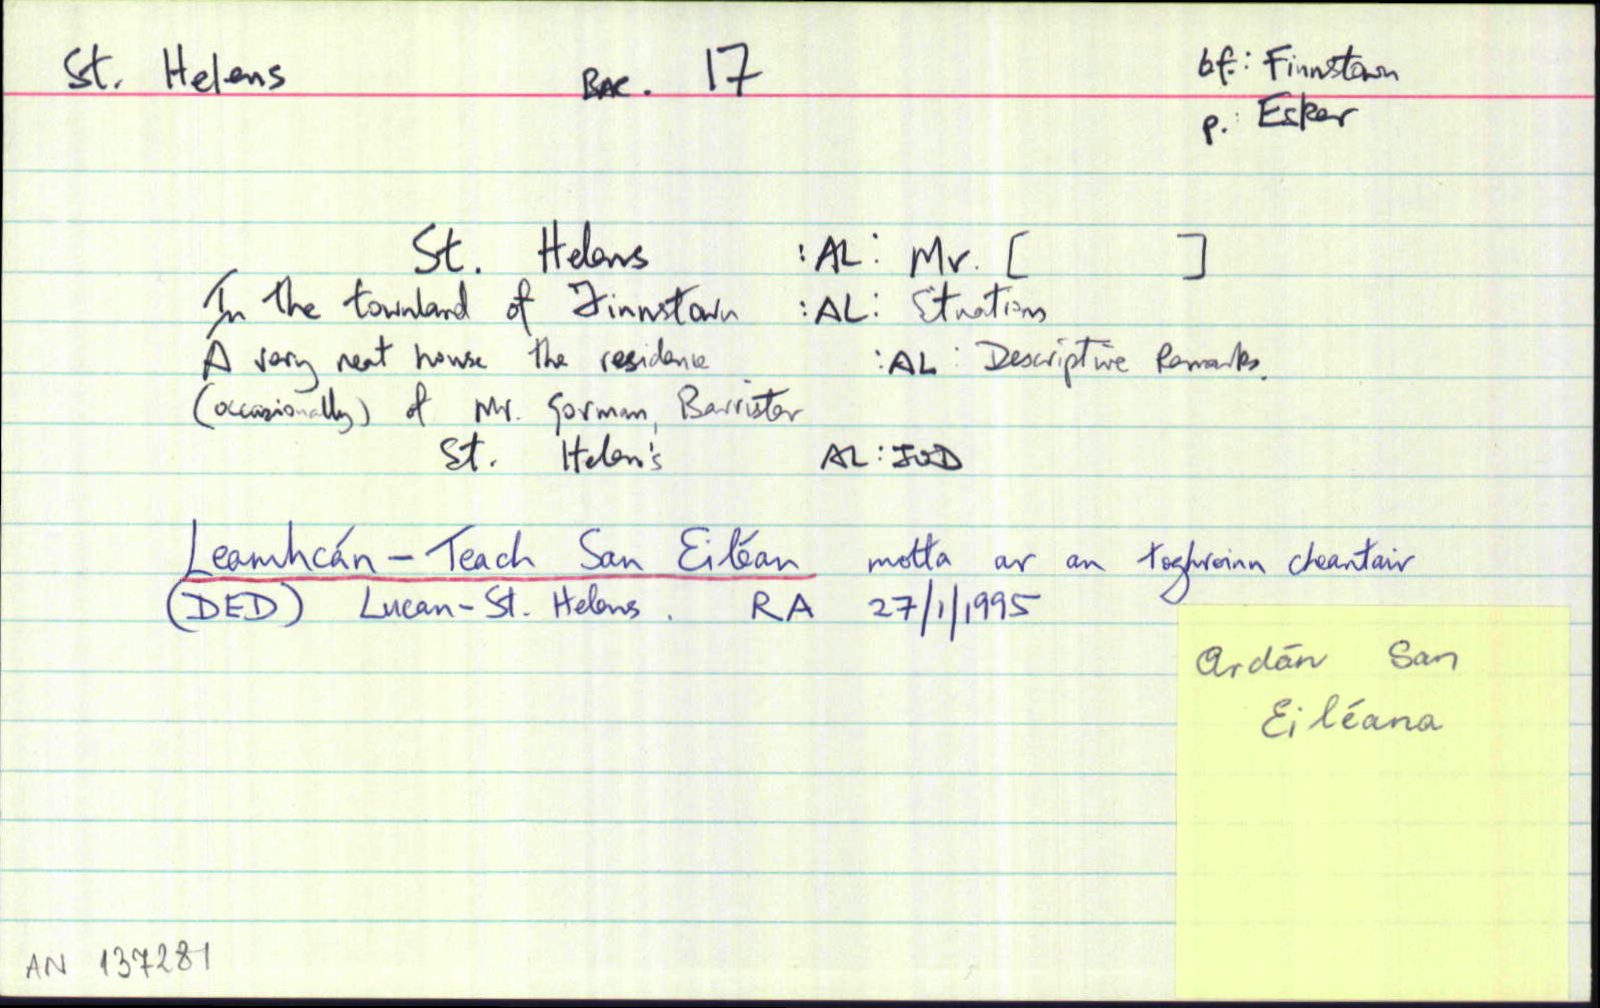 St. Helens BAC. 17 bf: Finnstown
p. Esker
St. Helens :AL: Mr. [ ]
In the townland of Finnstown :AL: Situation
A very neat house the residence :AL: Descriptive Remarks.
(occasionally) of Mr. Gorman, Barrister
St. Helen's AL: JOD
Leamhcán – Teach San Eiléan molta ar an toghroinn cheantair
(DED) Lucan-St. Helens. RA 27/1/1995
Ardán San
Eiléana
AN 137281